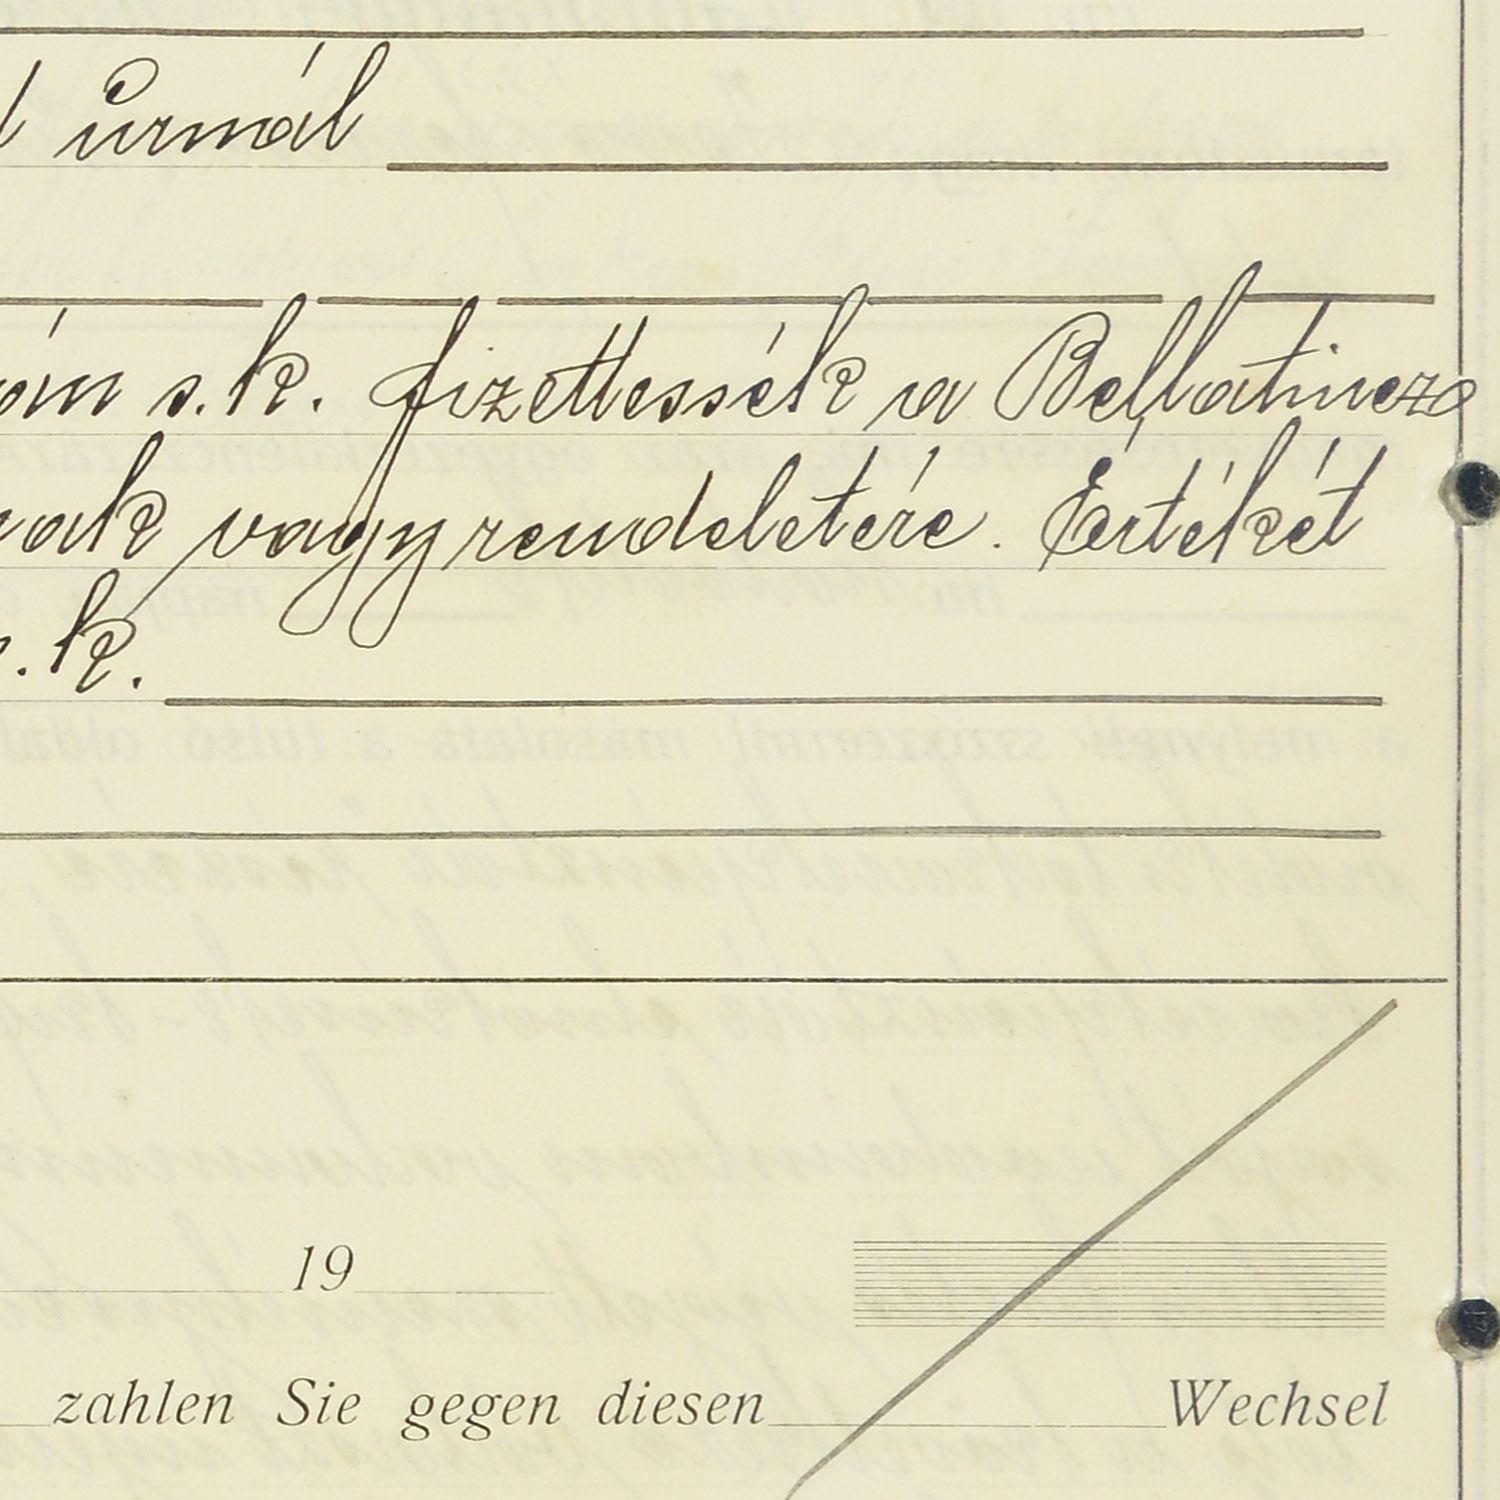 úrmál
s. k. fizettessék a Bellatincz
vagy rendeletére. Értékét
k.
19
zahlen Sie gegen diesen Wechsel